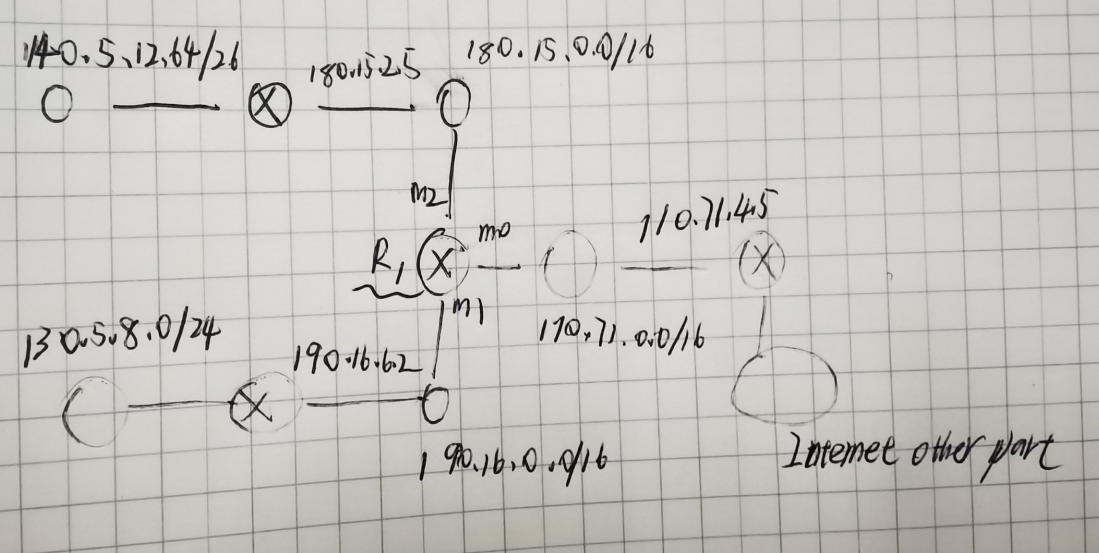 140.5.12.64/26
180.15.2.5
180.15.0.0/16
m2
m0
110.71.4.5
R1
m1
130.5.8.0/24
190.16.6.2
170.71.0.0/16
190.16.0.0/16
Internet other part